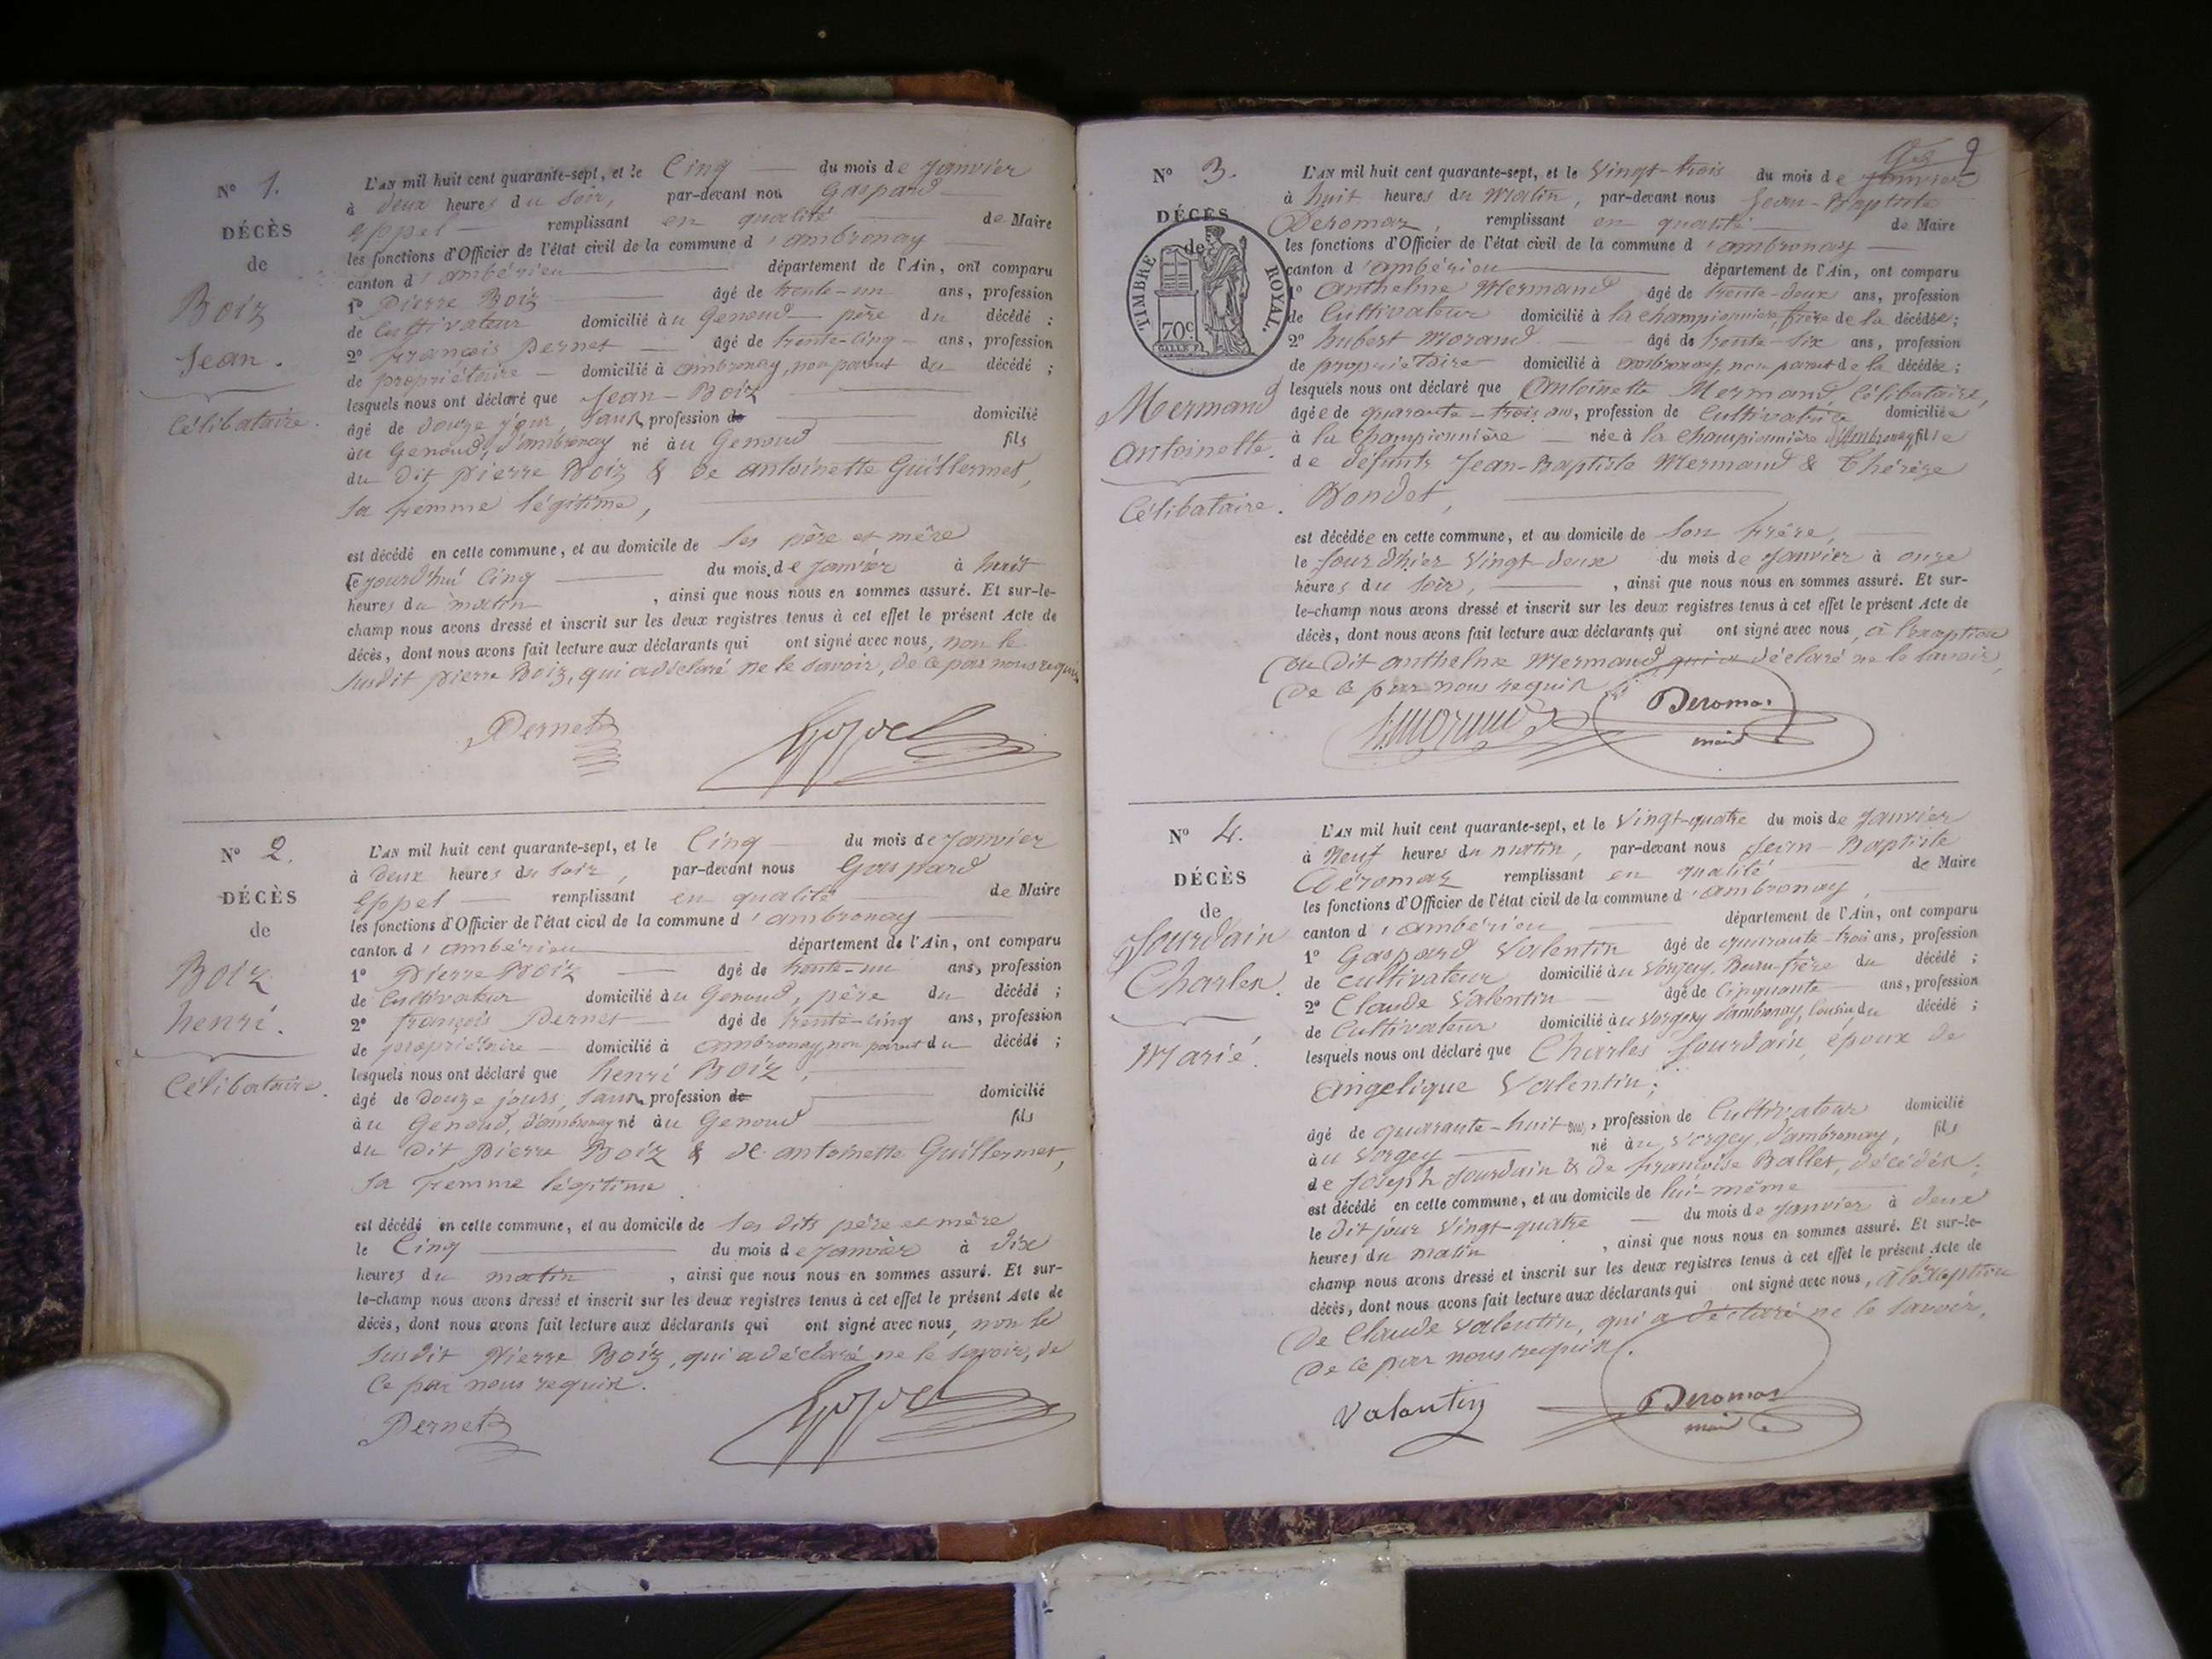 N° 1.
DÉCÈS
de
Boiz
Jean.
Célibataire.
L'AN mil huit cent quarante-sept, et le Cinq du mois de Janvier
à deux heures du soir, par-devant nou Gaspard
Eppel remplissant en qualité de Maire
les fonctions d'Officier de l'état civil de la commune d'ambronay
canton d'ambérieu département de l'Ain, ont comparu
1° Pierre Boiz âgé de trente-un ans, profession
de Cultivateur domicilié àu Genoud père du décédé ;
2° François Dernet âgé de trente-cinq ans, profession
de propriétaire domicilié à ambronay, non parent du décédé ;
lesquels nous ont déclaré que Jean Boiz
âgé de douze jour, sans profession de domicilié
àu Genoud, d'ambronay né àu Genoud fils
du dit pierre Boiz & de antoinette Guillermet,
sa femme légitime,
est décédé en cette commune, et au domicile de ses père et mère
le jourd'hui Cinq du mois de Janvier à huit
heures du matin, ainsi que nous nous en sommes assuré. Et sur-le-
champ nous avons dressé et inscrit sur les deux registres tenus à cet effet le présent Acte de
décès, dont nous avons fait lecture aux déclarants qui ont signé avec nous, non le
susdit pierre Boiz, qui a déclaré ne le savoir, de ce par nous requis
Dernet Eppel
N° 2.
DÉCÈS
de
Boiz
henri.
Célibataire.
L'AN mil huit cent quarante-sept, et le Cinq du mois de Janvier
à deux heures du soir, par-devant nous Gaspard
Eppel remplissant en qualité de Maire
les fonctions d'Officier de l'état civil de la commune d'ambronay
canton d'ambérieu département de l'Ain, ont comparu
1° Pierre Boiz âgé de trente-un ans, profession
de Cultivateur domicilié àu Genoud, père du décédé ;
2° françois Dernet âgé de trente-cinq ans, profession
de propriétaire domicilié à ambronay, non parent du décédé ;
lesquels nous ont déclaré que henri Boiz,
âgé de douze jours, sans profession de domicilié
àu Genoud, d'ambronay né àu Genoud fils
du dit pierre Boiz & de antoinette Guillermet,
sa femme légitime
est décédé en cette commune, et au domicile de ses dits père et mère
le Cinq du mois de Janvier à dix
heures du matin, ainsi que nous nous en sommes assuré. Et sur-
le-champ nous avons dressé et inscrit sur les deux registres tenus à cet effet le présent Acte de
décès, dont nous avons fait lecture aux déclarants qui ont signé avec nous, non le
susdit Pierre Boiz, qui a déclaré ne le savoir, de
ce par nous requis.
Dernet Eppel
9
N° 3.
DÉCÈS
de
TIMBRE ROYAL.
70c
Mermand
antoinette.
Célibataire.
L'AN mil huit cent quarante-sept, et le vingt-trois du mois de Janvier
à huit heures du matin, par-devant nous Jean-Baptiste
Deromaz, remplissant en qualité de Maire
les fonctions d'Officier de l'état civil de la commune d'ambronay
canton d'ambérieu département de l'Ain, ont comparu
1° Anthelme Mermand âgé de trente-deux ans, profession
de Cultivateur domicilié à la championnière, frère de la décédée ;
2° hubert Morand âgé de trente-six ans, profession
de propriétaire domicilié à ambronay, non parent de la décédée ;
lesquels nous ont déclaré que Antoinette Mermand, Célibataire,
âgée de quarante-trois ans, profession de Cultivatrice domiciliée
à la championnière née à la championnière d'Ambronay fille
de défunts Jean-Baptiste Mermand & Thérèze
Bondet,
est décédée en cette commune, et au domicile de son frère,
le jour d'hier vingt-deux du mois de Janvier à onze
heures du soir, , ainsi que nous nous en sommes assuré. Et sur-
le-champ nous avons dressé et inscrit sur les deux registres tenus à cet effet le présent Acte de
décès, dont nous avons fait lecture aux déclarants qui ont signé avec nous, à l'exception
du dit anthelme Mermand, qui a déclaré ne le savoir,
de ce par nous requis
h. Morand Deromaz
maire
N° 4.
DÉCÈS
de
Jourdain
Charles.
Marié.
L'AN mil huit cent quarante-sept, et le vingt-quatre du mois de Janvier
à Neuf heures du matin, par-devant nous Jean-Baptiste
Déromaz remplissant en qualité de Maire
les fonctions d'Officier de l'état civil de la commune d'ambronay,
canton d'ambérieu département de l'Ain, ont comparu
1° Gaspard Valentin âgé de quarante-trois ans, profession
de cultivateur domicilié àu Vorgey, Beau-frère du décédé ;
2° Claude Valentin âgé de Cinquante ans, profession
de Cultivateur domicilié àu Vorgey d'ambronay, Cousin du décédé ;
lesquels nous ont déclaré que Charles Jourdain, époux de
angelique Valentin ;
âgé de quarante-huit ans, profession de Cultivateur domicilié
àu Vorgey né àu Vorgey, d'ambronay, fils
de Joseph Jourdain & de françoise Ballet, décédés ;
est décédé en cette commune, et au domicile de lui-même
le dit jour vingt-quatre du mois de Janvier à deux
heures du matin , ainsi que nous nous en sommes assuré. Et sur-le-
champ nous avons dressé et inscrit sur les deux registres tenus à cet effet le présent Acte de
décès, dont nous avons fait lecture aux déclarants qui ont signé avec nous, à l'exception
de Claude Valentin, qui a déclaré ne le savoir,
de ce par nous requis.
Valentin Deromaz
maire